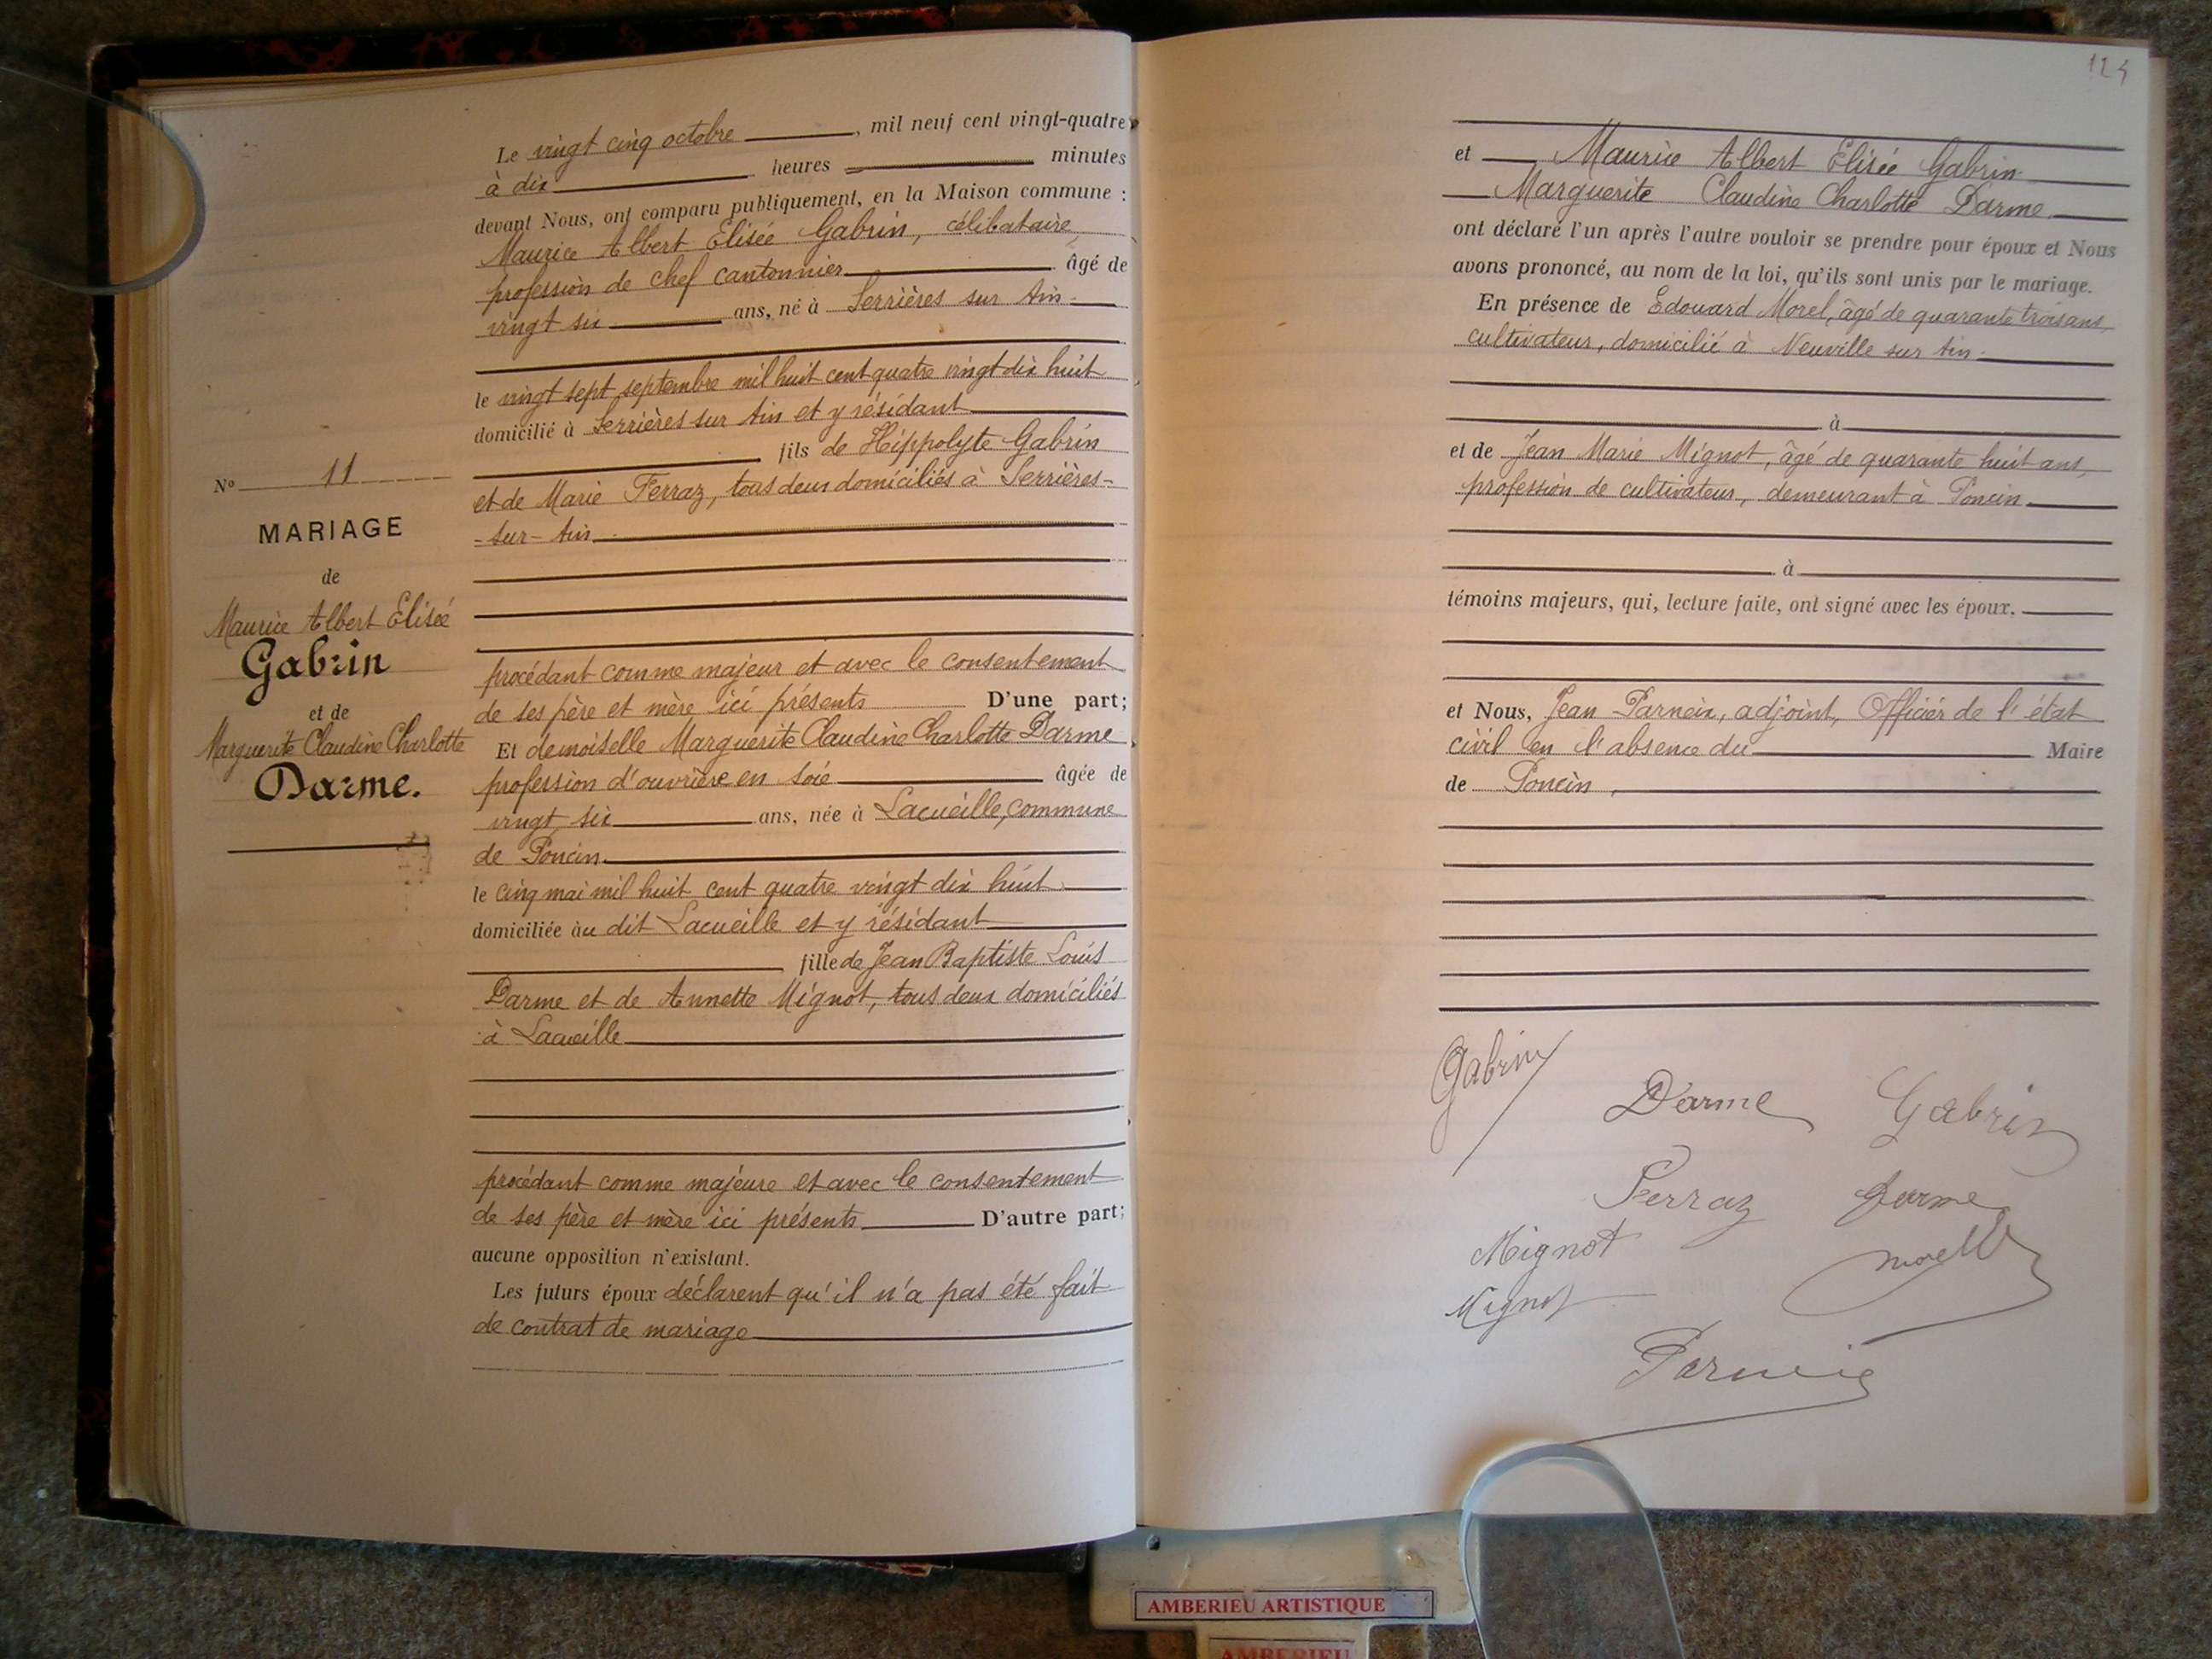 Le vingt cinq octobre, mil neuf cent vingt-quatre
à dix heures minutes
devant Nous, ont comparu publiquement, en la Maison commune :
Maurice Albert Elisée Gabrin, célibataire,
profession de chef cantonnier âgé de
vingt six ans, né à Serrières sur Ain
le vingt sept septembre mil huit cent quatre vingt dix huit
domicilié à Serrières sur Ain et y résidant
fils de Hippolyte Gabrin
et de Marie Ferraz, tous deux domiciliés à Serrières-
-sur-Ain
procédant comme majeur et avec le consentement
de ses père et mère ici présents D'une part;
Et demoiselle Marguerite Claudine Charlotte Darme
profession d'ouvrière en soie âgée de
vingt six ans, née à Lacueille, commune
de Poncin
le cinq mai mil huit cent quatre vingt dix huit
domiciliée au dit Lacueille et y résidant
fille de Jean Baptiste Louis
Darme et de Annette Mignot, tous deux domiciliés
à Lacueille
procédant comme majeure et avec le consentement
de ses père et mère ici présents D'autre part;
aucune opposition n'existant.
Les futurs époux déclarent qu'il n'a pas été fait
de contrat de mariage
No 11
MARIAGE
de
Maurice Albert Elisée
Gabrin
et de
Marguerite Claudine Charlotte
Darme.
124
et Maurice Albert Elisée Gabrin
Marguerite Claudine Charlotte Darme
ont déclaré l'un après l'autre vouloir se prendre pour époux et Nous
avons prononcé, au nom de la loi, qu'ils sont unis par le mariage.
En présence de Edouard Morel, âgé de quarante trois ans,
cultivateur, domicilié à Neuville sur Ain
à
et de Jean Marie Mignot, âgé de quarante huit ans,
profession de cultivateur, demeurant à Poncin
à
témoins majeurs, qui, lecture faite, ont signé avec les époux.
et Nous, Jean adjoint, Officier de l'état
civil en l'absence du Maire
de Poncin,
Gabrin
Darme Gabrin
Ferraz Darme
Mignot Morel
Mignot
AMBERIEU ARTISTIQUE
AMBERIEU